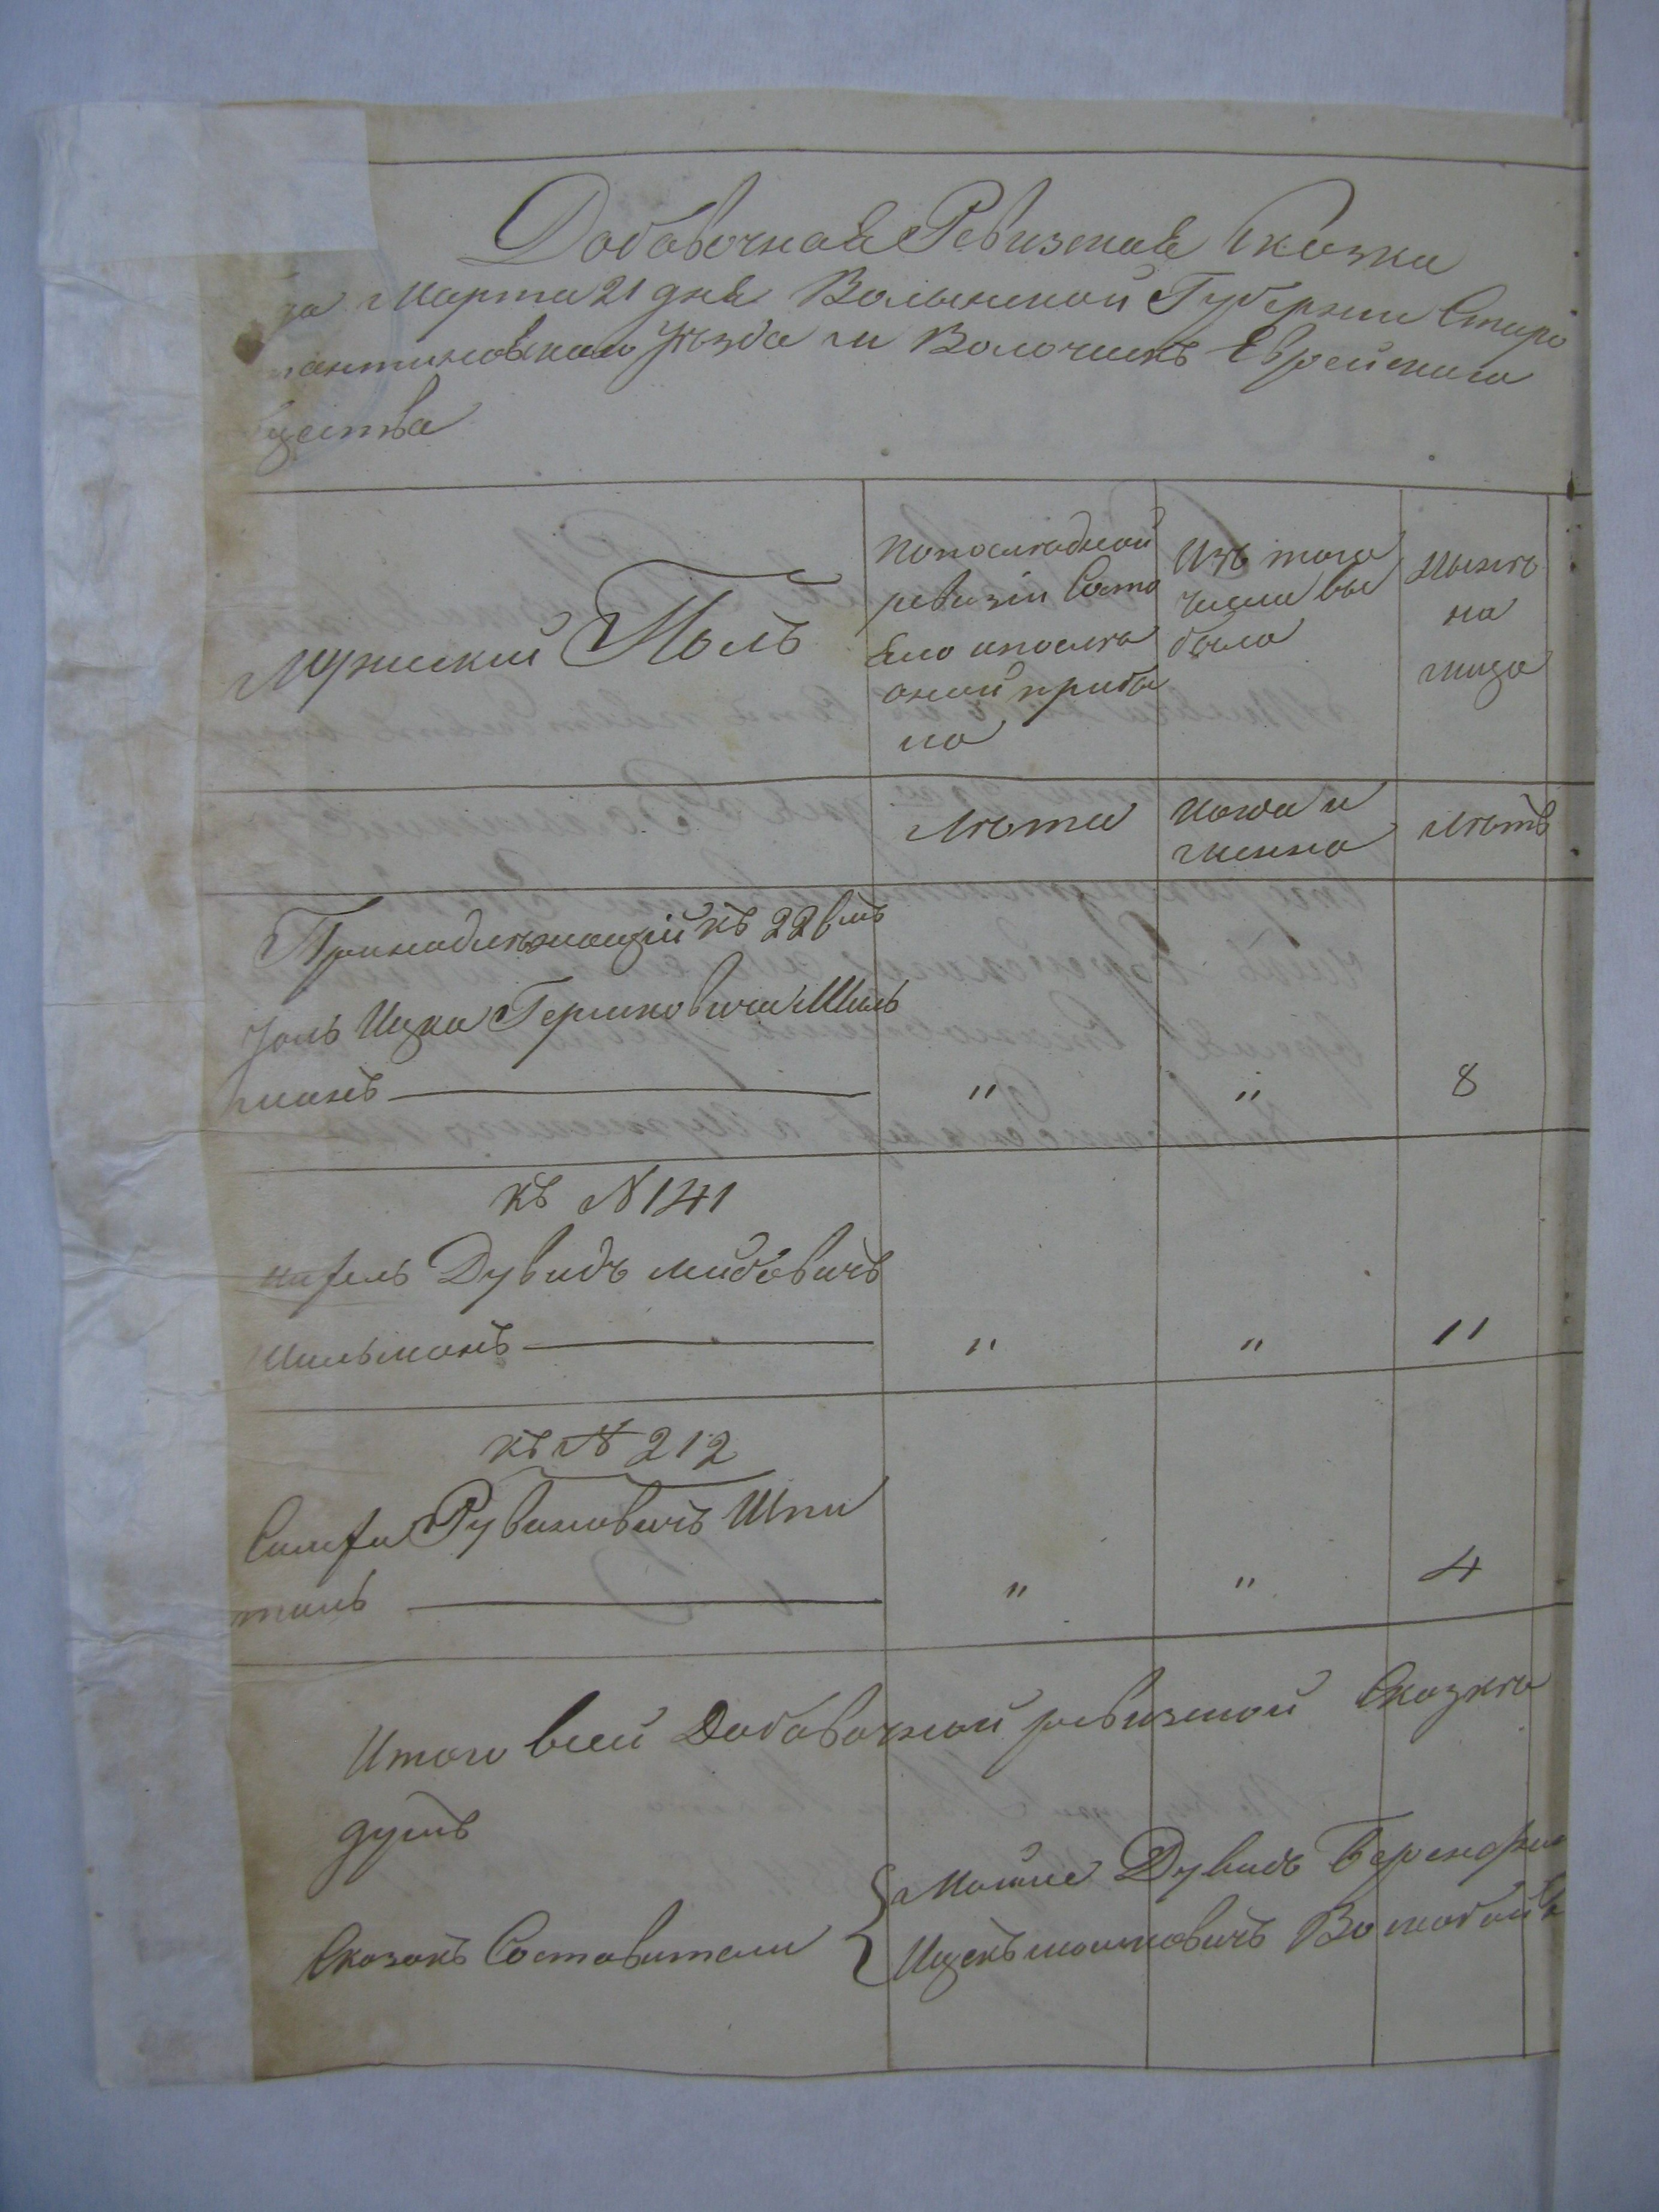 Добавочная Ревизская Сказка
да Марта 21 дня Волынской Губернии Старо
кантиновскаго уѣзда м Волочискъ Еврейскаго
щества
Мужский Полъ
Попослѣдной
ревизіи Состо
яло ипослѣ
оной прибы
ло
Изъ того
числа вы
было
Нынѣ
на
лицо
Лѣта
Когда и
менно
Лѣтъ
Принадлѣжащій къ 22
Іоль Ицка Гершковичъ Шиль
манъ
"
"
8
къ N 141
Дувидъ Лейбовичъ
Шильманъ
"
"
11
къ N 212
Рувиновичъ Шпи
"
"
4
Итого всей Добавочной ревизской Сказкѣ
душъ
Сказокъ Составители
Мошке Дувидъ
Ицекъ мошковичъ